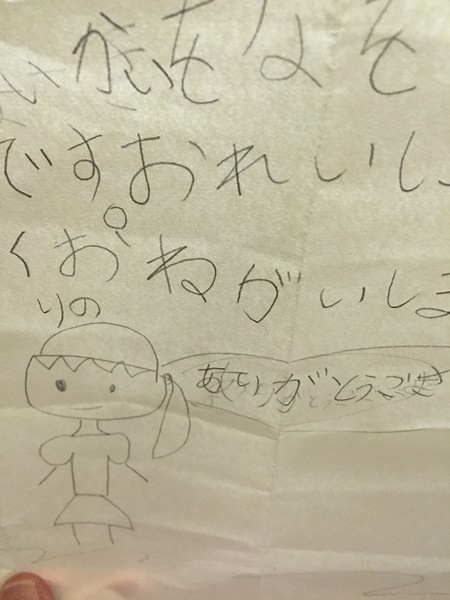 がいをなそ
ですおれいし
くおねがいしま
りの
ありがとうござ